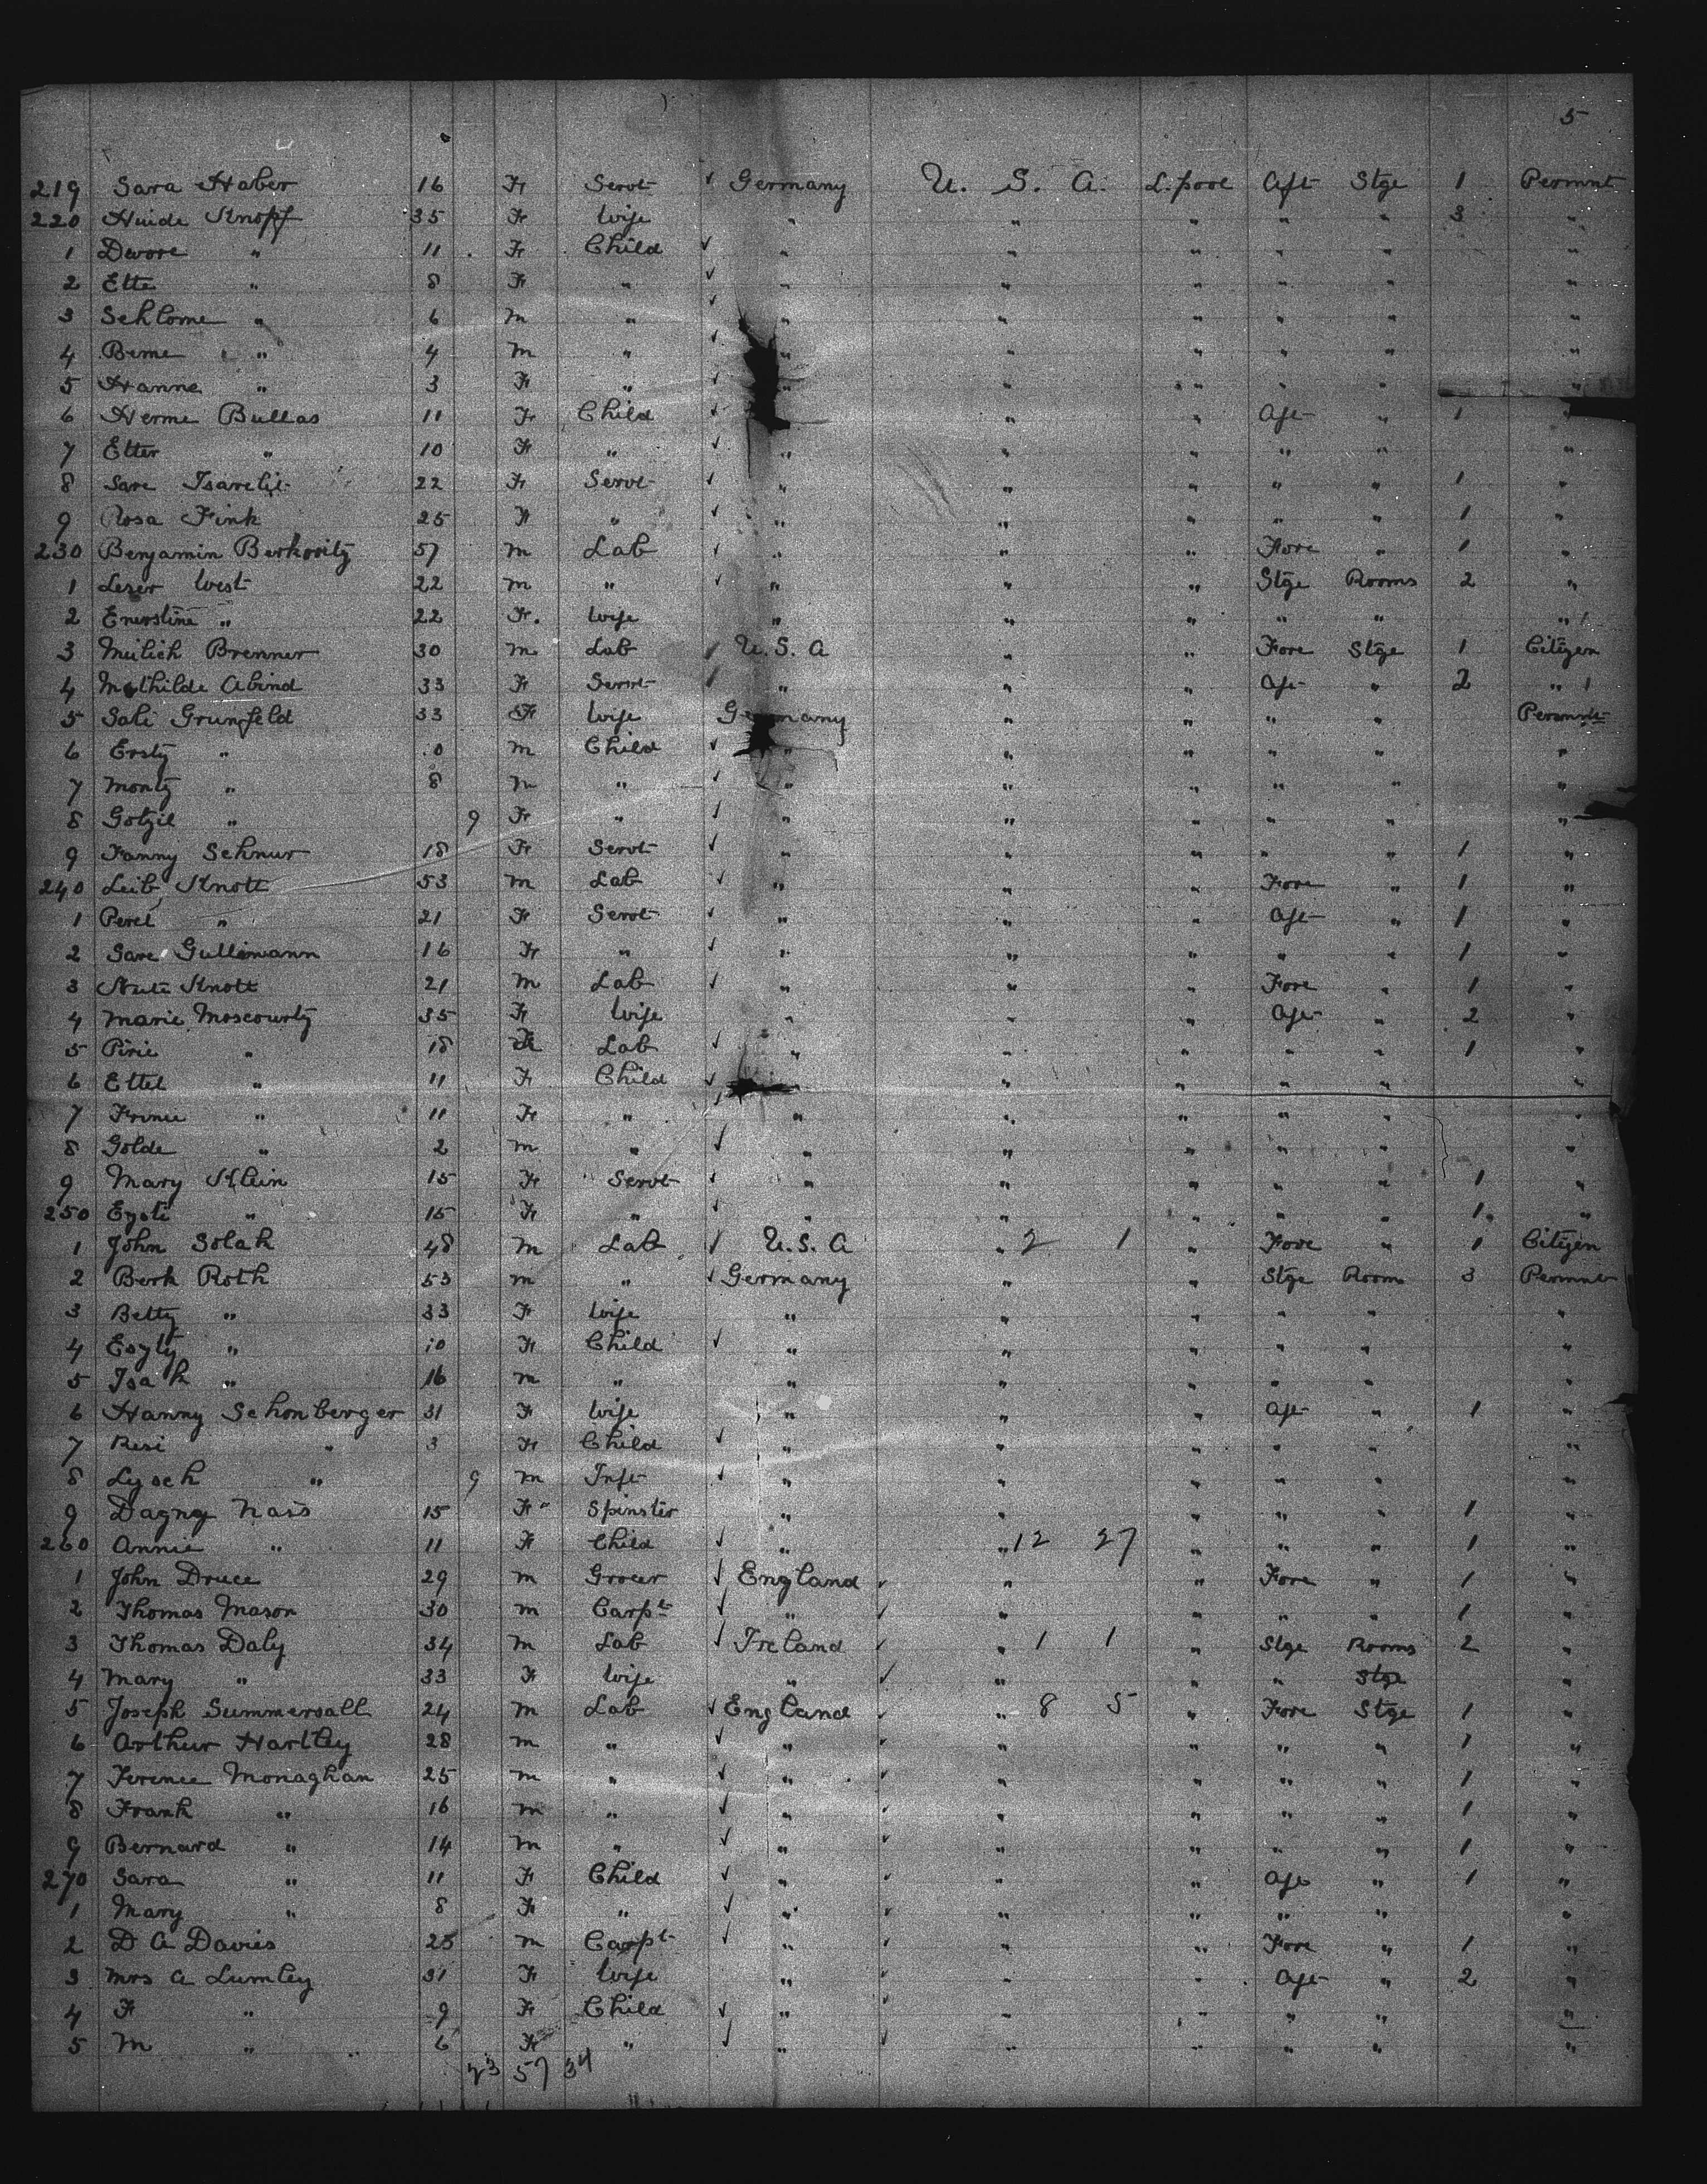 5
219 Sara Haber 16 F Servt ✓ Germany U. S. A. L.pool Aft Stge 1 Permnt
220 Huide Knopf 35 F Wife " " " " " 3 "
1 Dwore " 11 F Child ✓ " " " " " "
2 Ette " 8 F " ✓ " " " " " "
3 Schlome " 6 M " ✓ " " " " " "
4 Berne " 4 M " ✓ " " " " " "
5 Hanne " 3 F " ✓ " " " " " "
6 Herme Bullas 11 F Child ✓ " " " Aft " 1 "
7 Etter " 10 F " ✓ " " " " " "
8 Sare Isarelit 22 F Servt ✓ " " " " " 1 "
9 Rosa Fink 25 F " ✓ " " " " " 1 "
230 Benjamin Berkovitz 57 M Lab ✓ " " " Fore " 1 "
1 Leser West 22 M " ✓ " " " Stge Rooms 2 "
2 Enerstine " 22 F. Wife " " " " " "
3 Milich Brenner 30 M Lab ✓ U.S.A " " Fore Stge 1 Citizen
4 Mathilde Abind 33 F Servt ✓ " " " Aft " 2 "
5 Sali Grunfeld 33 F Wife Germany " " " " Permnt
6 Ersty " 10 M Child ✓ " " " " " "
7 Monty " 8 M " ✓ " " " " " "
8 Gotzil " 9 F " ✓ " " " " " "
9 Fanny Schnur 18 F Servt ✓ " " " " " 1 "
240 Leib Knott 53 M Lab ✓ " " " Fore " 1 "
1 Perel " 21 F Servt ✓ " " " Aft " 1 "
2 Sare Gullimann 16 F " ✓ " " " " " 1 "
3 Nute Knott 21 M Lab ✓ " " " Fore " 1 "
4 Marie Moscourtz 35 F Wife " " " Aft " 2 "
5 Pirie " 18 F Lab ✓ " " " " " 1 "
6 Ettel " 11 F Child ✓ " " " " " "
7 Frince " 11 F " " " " " " "
8 Golde " 2 M " ✓ " " " " " "
9 Mary Klein 15 F Servt ✓ " " " " " 1 "
250 Ezsti " 15 F " ✓ " " " " " 1 "
1 John Solak 48 M Lab ✓ U.S.A " 2 1 " Fore " 1 Citizen
2 Berk Roth 53 M " ✓ Germany " " Stge Room 3 Permnt
3 Betty " 33 F Wife " " " " " "
4 Eszty " 10 F Child ✓ " " " " " "
5 Isak " 16 M " " " " " " "
6 Hanny Schonberger 31 F Wife " " " Aft " 1 "
7 Resi " 3 F Child ✓ " " " " " "
8 Lysch " 9 M Inft ✓ " " " " " "
9 Dagny Nass 15 F Spinster " " " " " 1 "
260 Annie " 11 F Child ✓ " " 12 27 " " " 1 "
1 John Druce 29 M Grocer ✓ England ✓ " " Fore " 1 "
2 Thomas Mason 30 M Carpt ✓ " ✓ " " " " 1 "
3 Thomas Daly 34 M Lab ✓ Ireland ✓ " 1 1 " Stge Rooms 2 "
4 Mary " 33 F Wife " ✓ " " " Stge "
5 Joseph Summersall 24 M Lab ✓ England ✓ " 8 5 " Fore Stge 1 "
6 Arthur Hartley 28 M " ✓ " ✓ " " " " 1 "
7 Terence Monaghan 25 M " ✓ " ✓ " " " " 1 "
8 Frank " 16 M " ✓ " ✓ " " " " 1 "
9 Bernard " 14 M " ✓ " ✓ " " " " 1 "
270 Sara " 11 F Child ✓ " ✓ " " Aft " 1 "
1 Mary " 8 F " ✓ " ✓ " " " " "
2 D A Davies 25 M Carpt ✓ " ✓ " " Fore " 1 "
3 Mrs A Lumley 31 F Wife " ✓ " " Aft " 2 "
4 F " 9 F Child ✓ " ✓ " " " " "
5 M " 6 F " ✓ " ✓ " " " " "
23 57 34